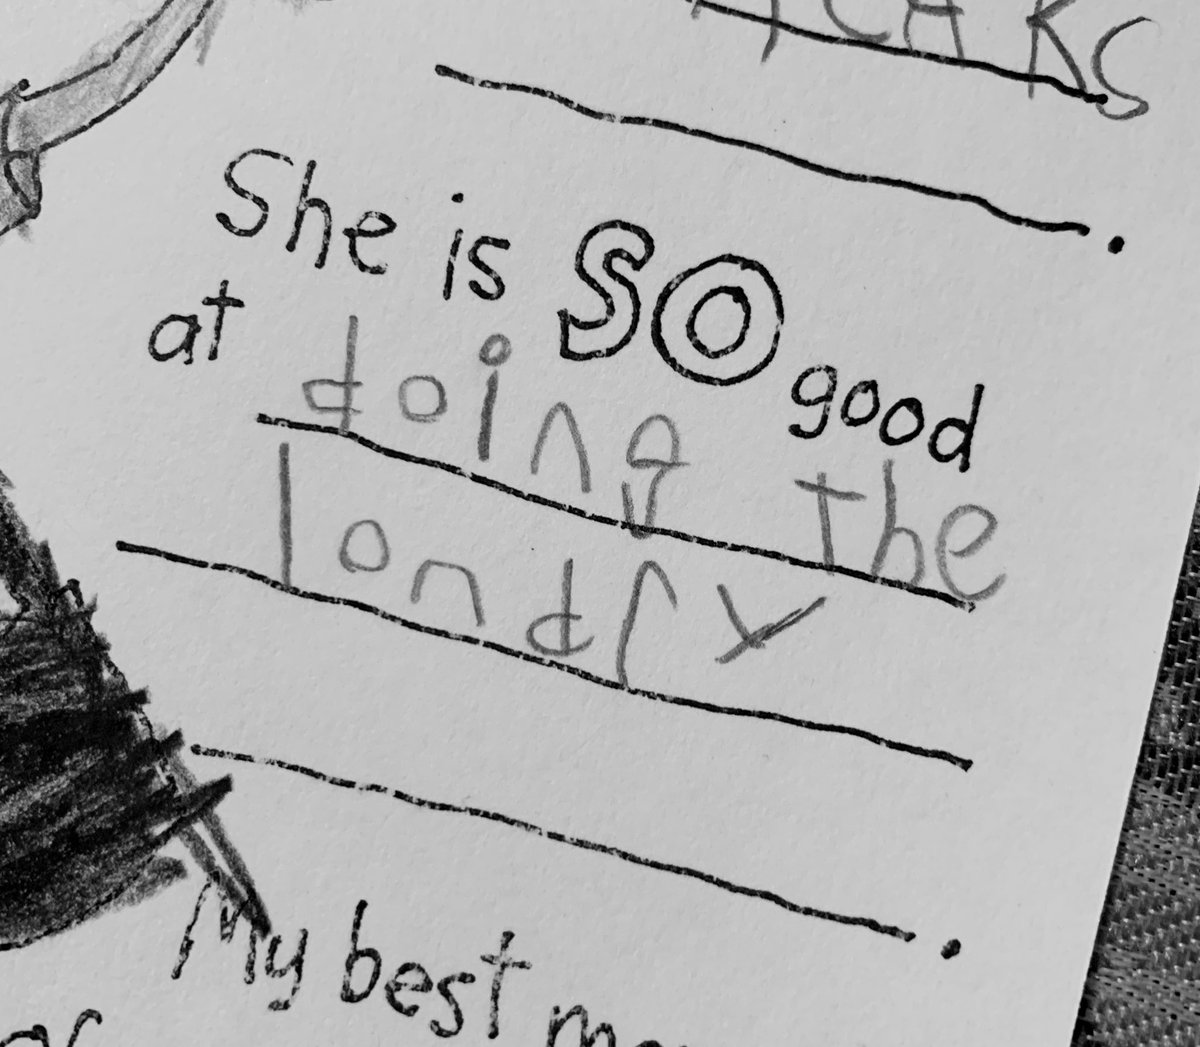 She is SO good
at doing the
londry
My best